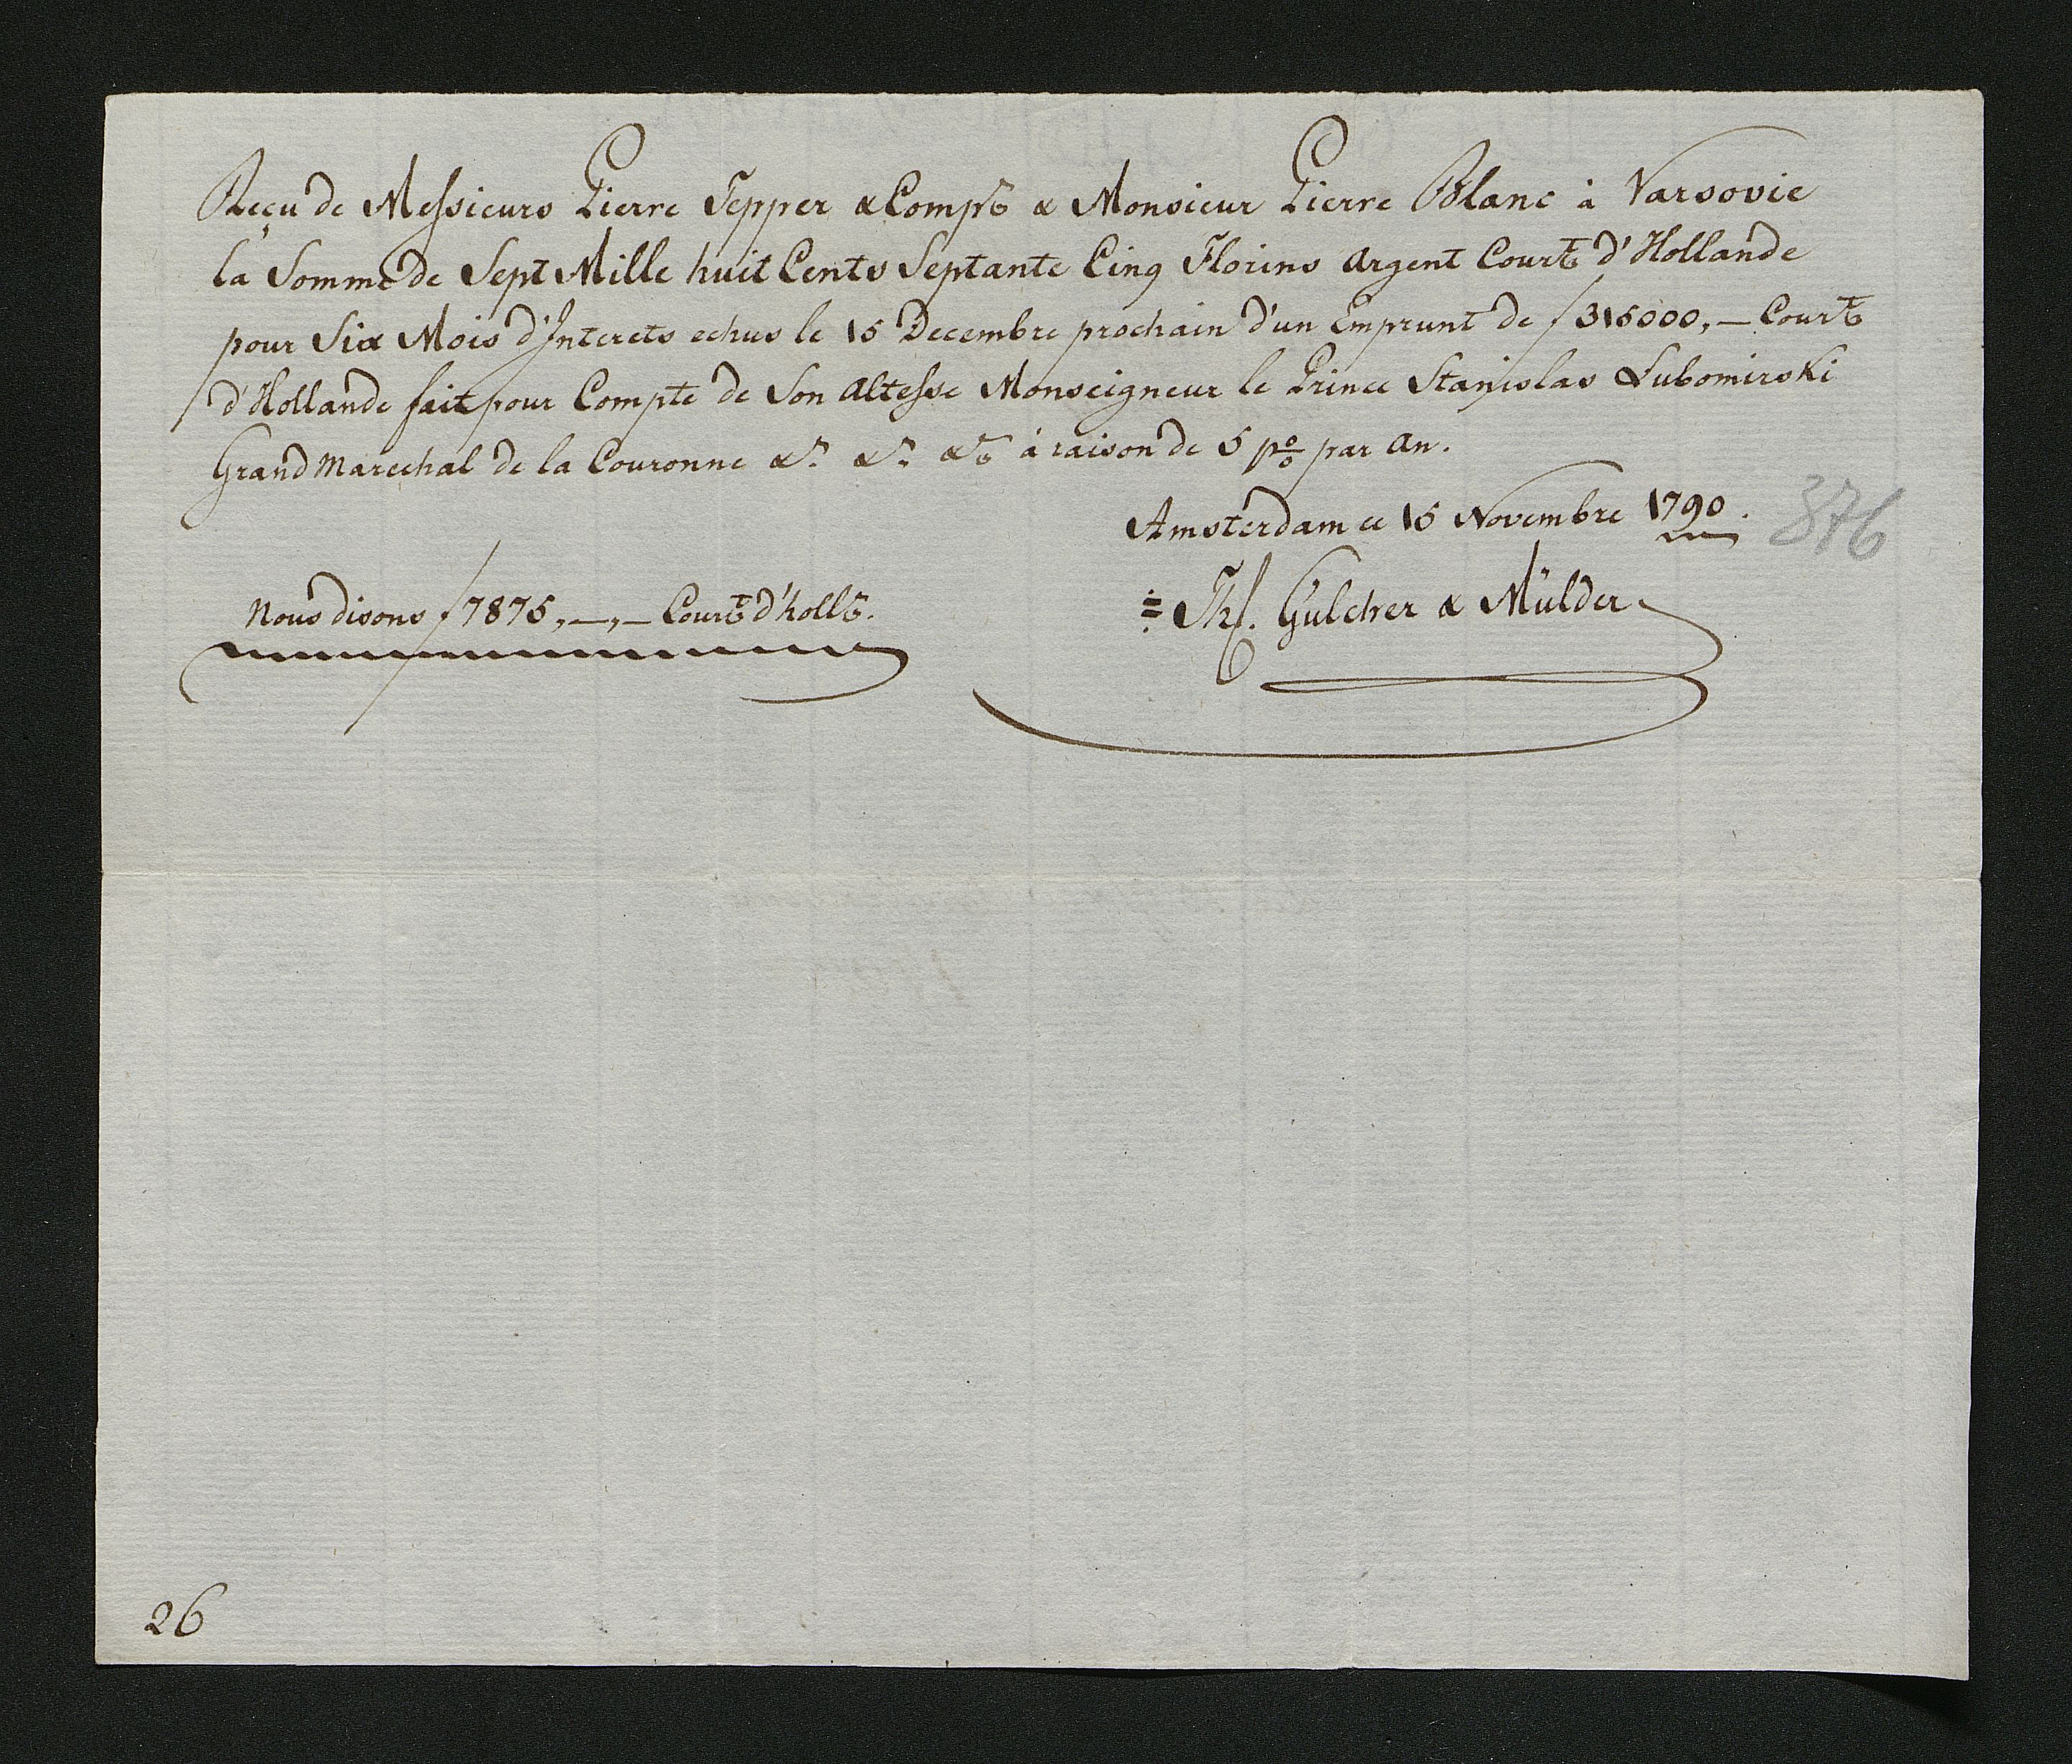 Reçu de Messieurs Pierre Tepper & Compe & Monsieur Pierre Blanc à Varsovie
la Somme de Sept Mille huit Cents Septante Cinq Florins Argent Courtt d'Hollande
pour Six Mois d'Interets echus le 15 Decembre prochain d'un Emprunt de f 315000,— Courtt
d'Hollande fait pour Compte de Son Altesse Monseigneur le Prince Stanislas Lubomirski
Grand Marechal de la Couronne &c. &c. &c. à raison de 5 p% par An.
Amsterdam ce 15 Novembre 1790.
376
Nous disons f 7875,—,— Courtt d'Holle.
Thf. Gülcher & Mülder
26